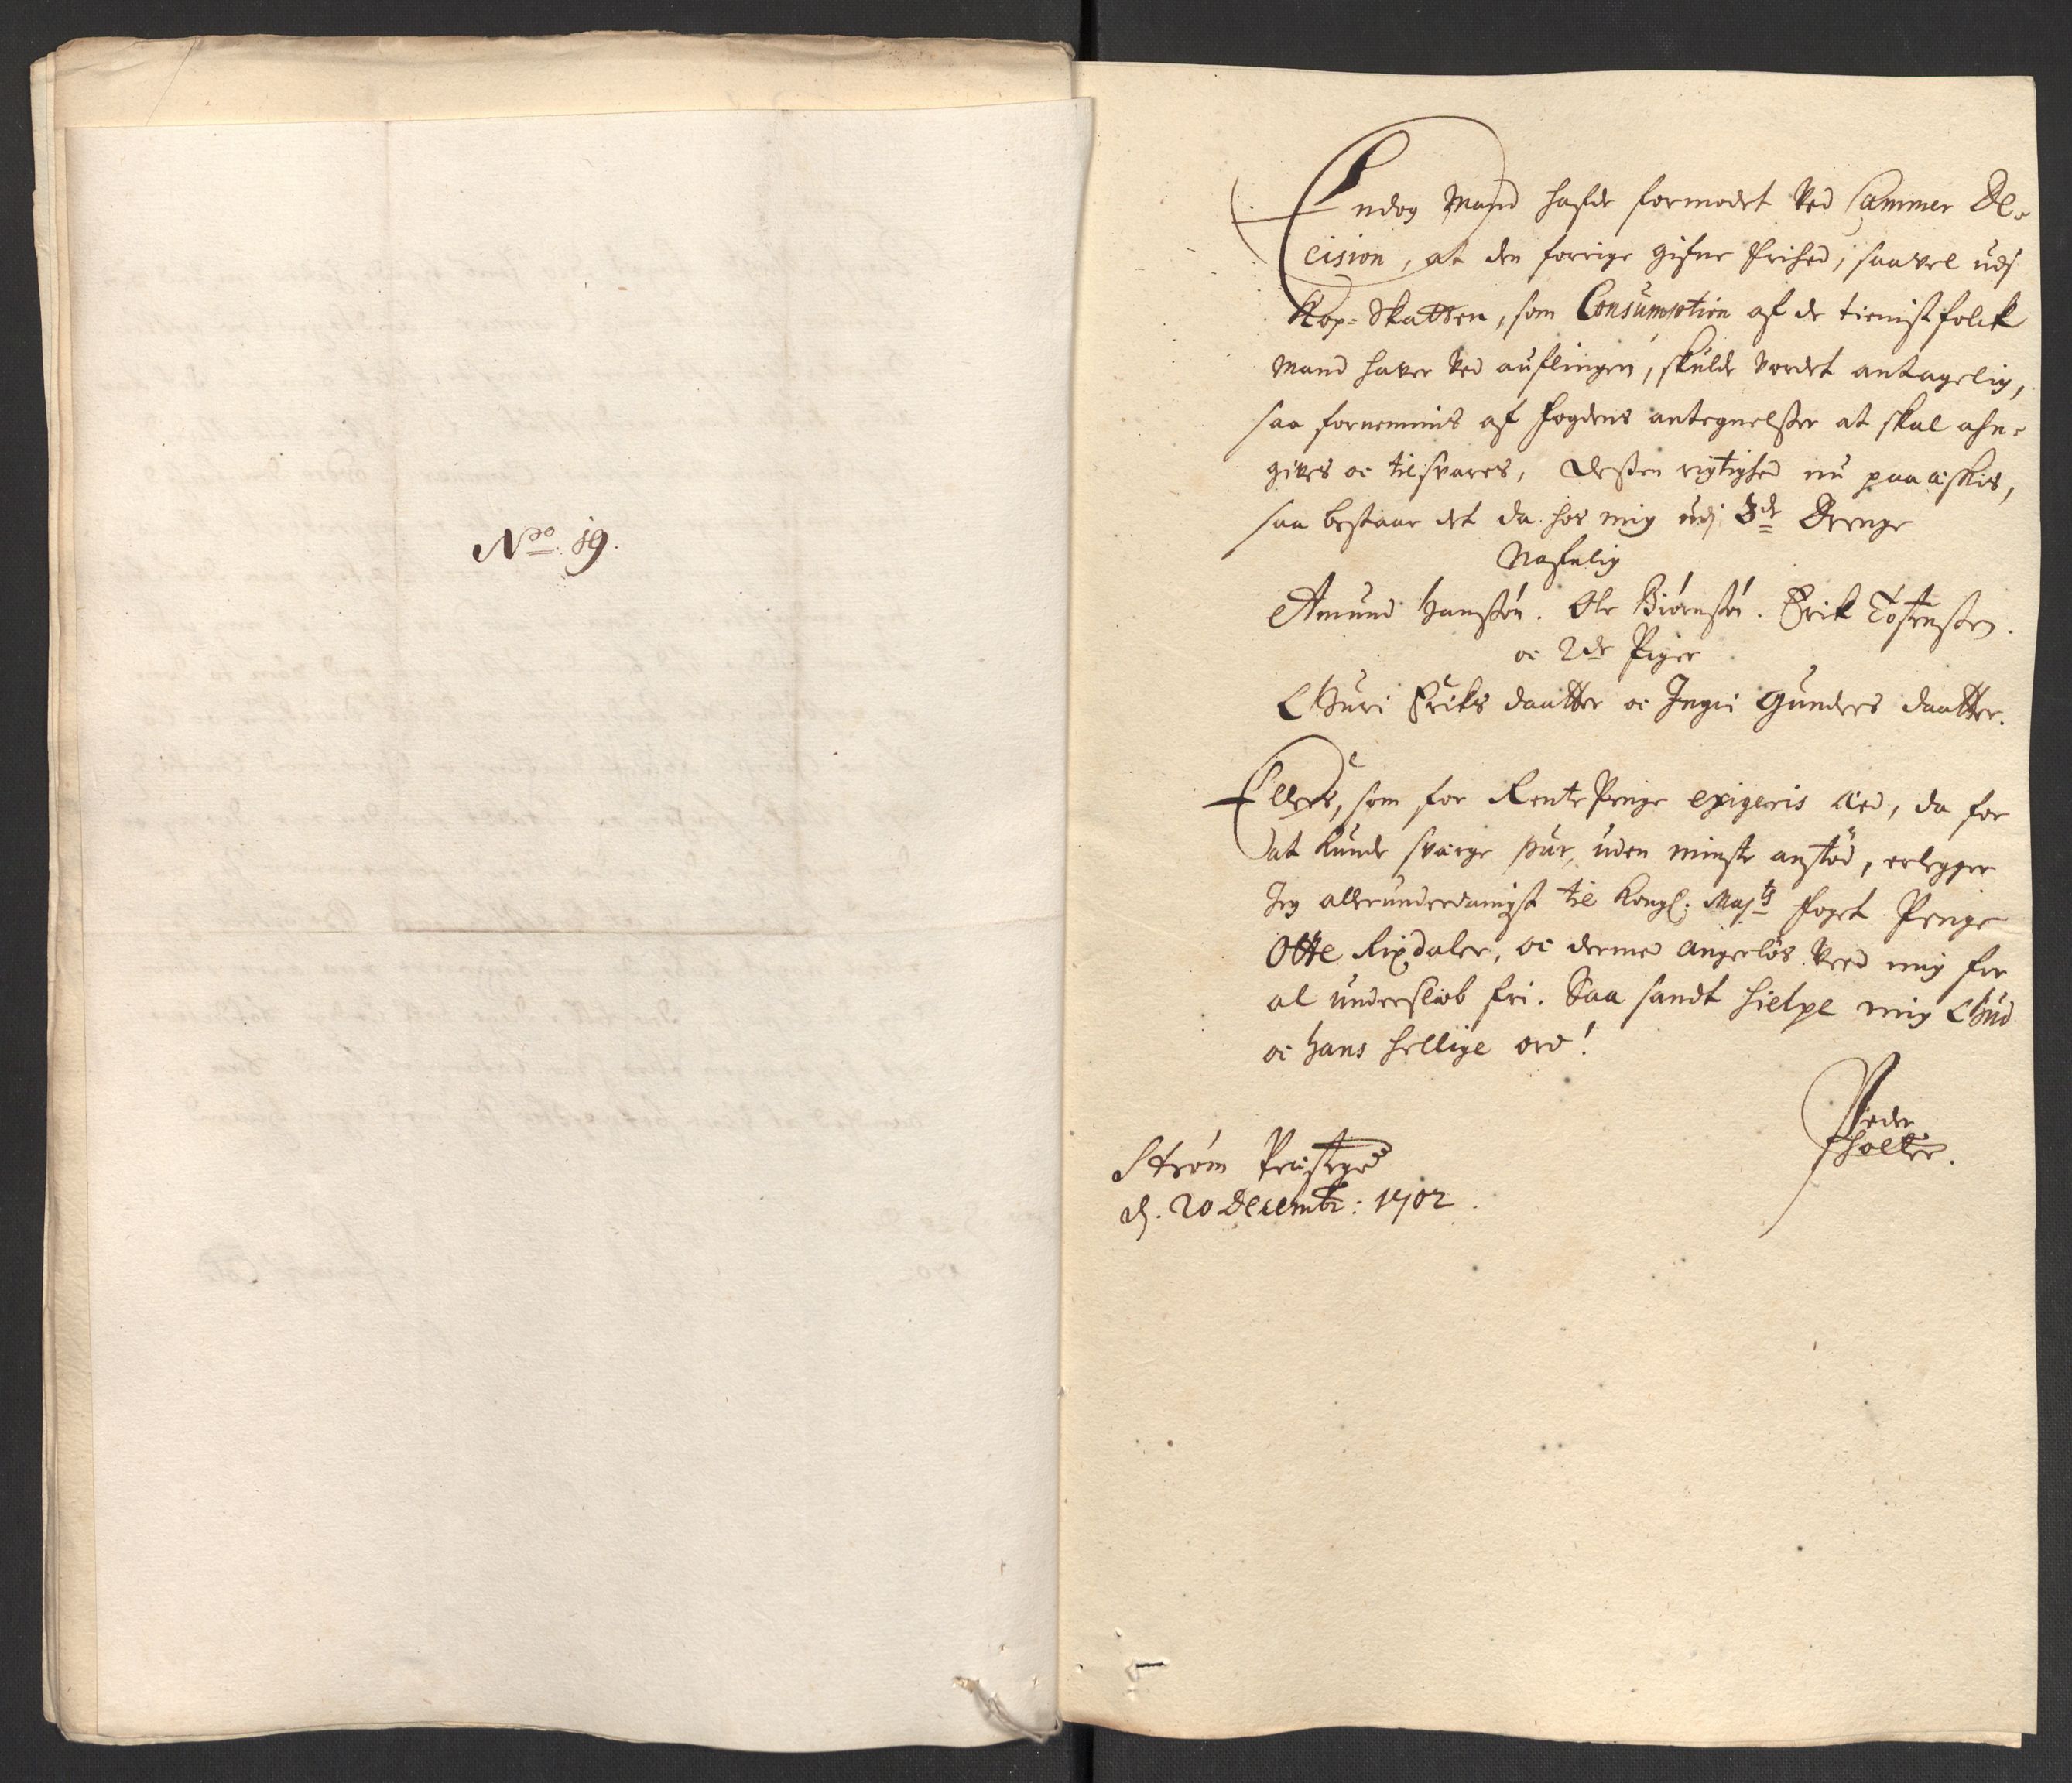 No. 19.
Endog Mand hafde formodet ved Cammer De-
cision, at den forrige gifne frihed, saavel udj
Kop-Skatten, som Consumption af de tienistfolck
Mand haver ved auflingen, skulde vordet antagelig,
saa fornemmis af fogdens antegnelser at skal ahn-
gives oc tilsvares, dessen rigtighed nu paaæskis,
saa bestaar det da hos mig udj 3de Drenge
Nafnlig
Amund Hanssøn. Ole Biørnssøn. Erik Tostenssen.
oc 2de Piger
Guri Eriks daatter oc Ingri Gunders daatter.
Ellers, som for RentePenge exigeris Æed, da for
at kunde sværge pur, uden minste anstød, erlegger
Jeg allerunderdanigst til Kongl. Majts foget Penge
Otte Rixdaler, oc dermed angerløs veed mig for
al underslæb fri. Saa sandt hielpe mig Gud
oc hans hellige ord!
Peder
Holter.
Strøm Præstegrd
d. 20 Decembr: 1702.